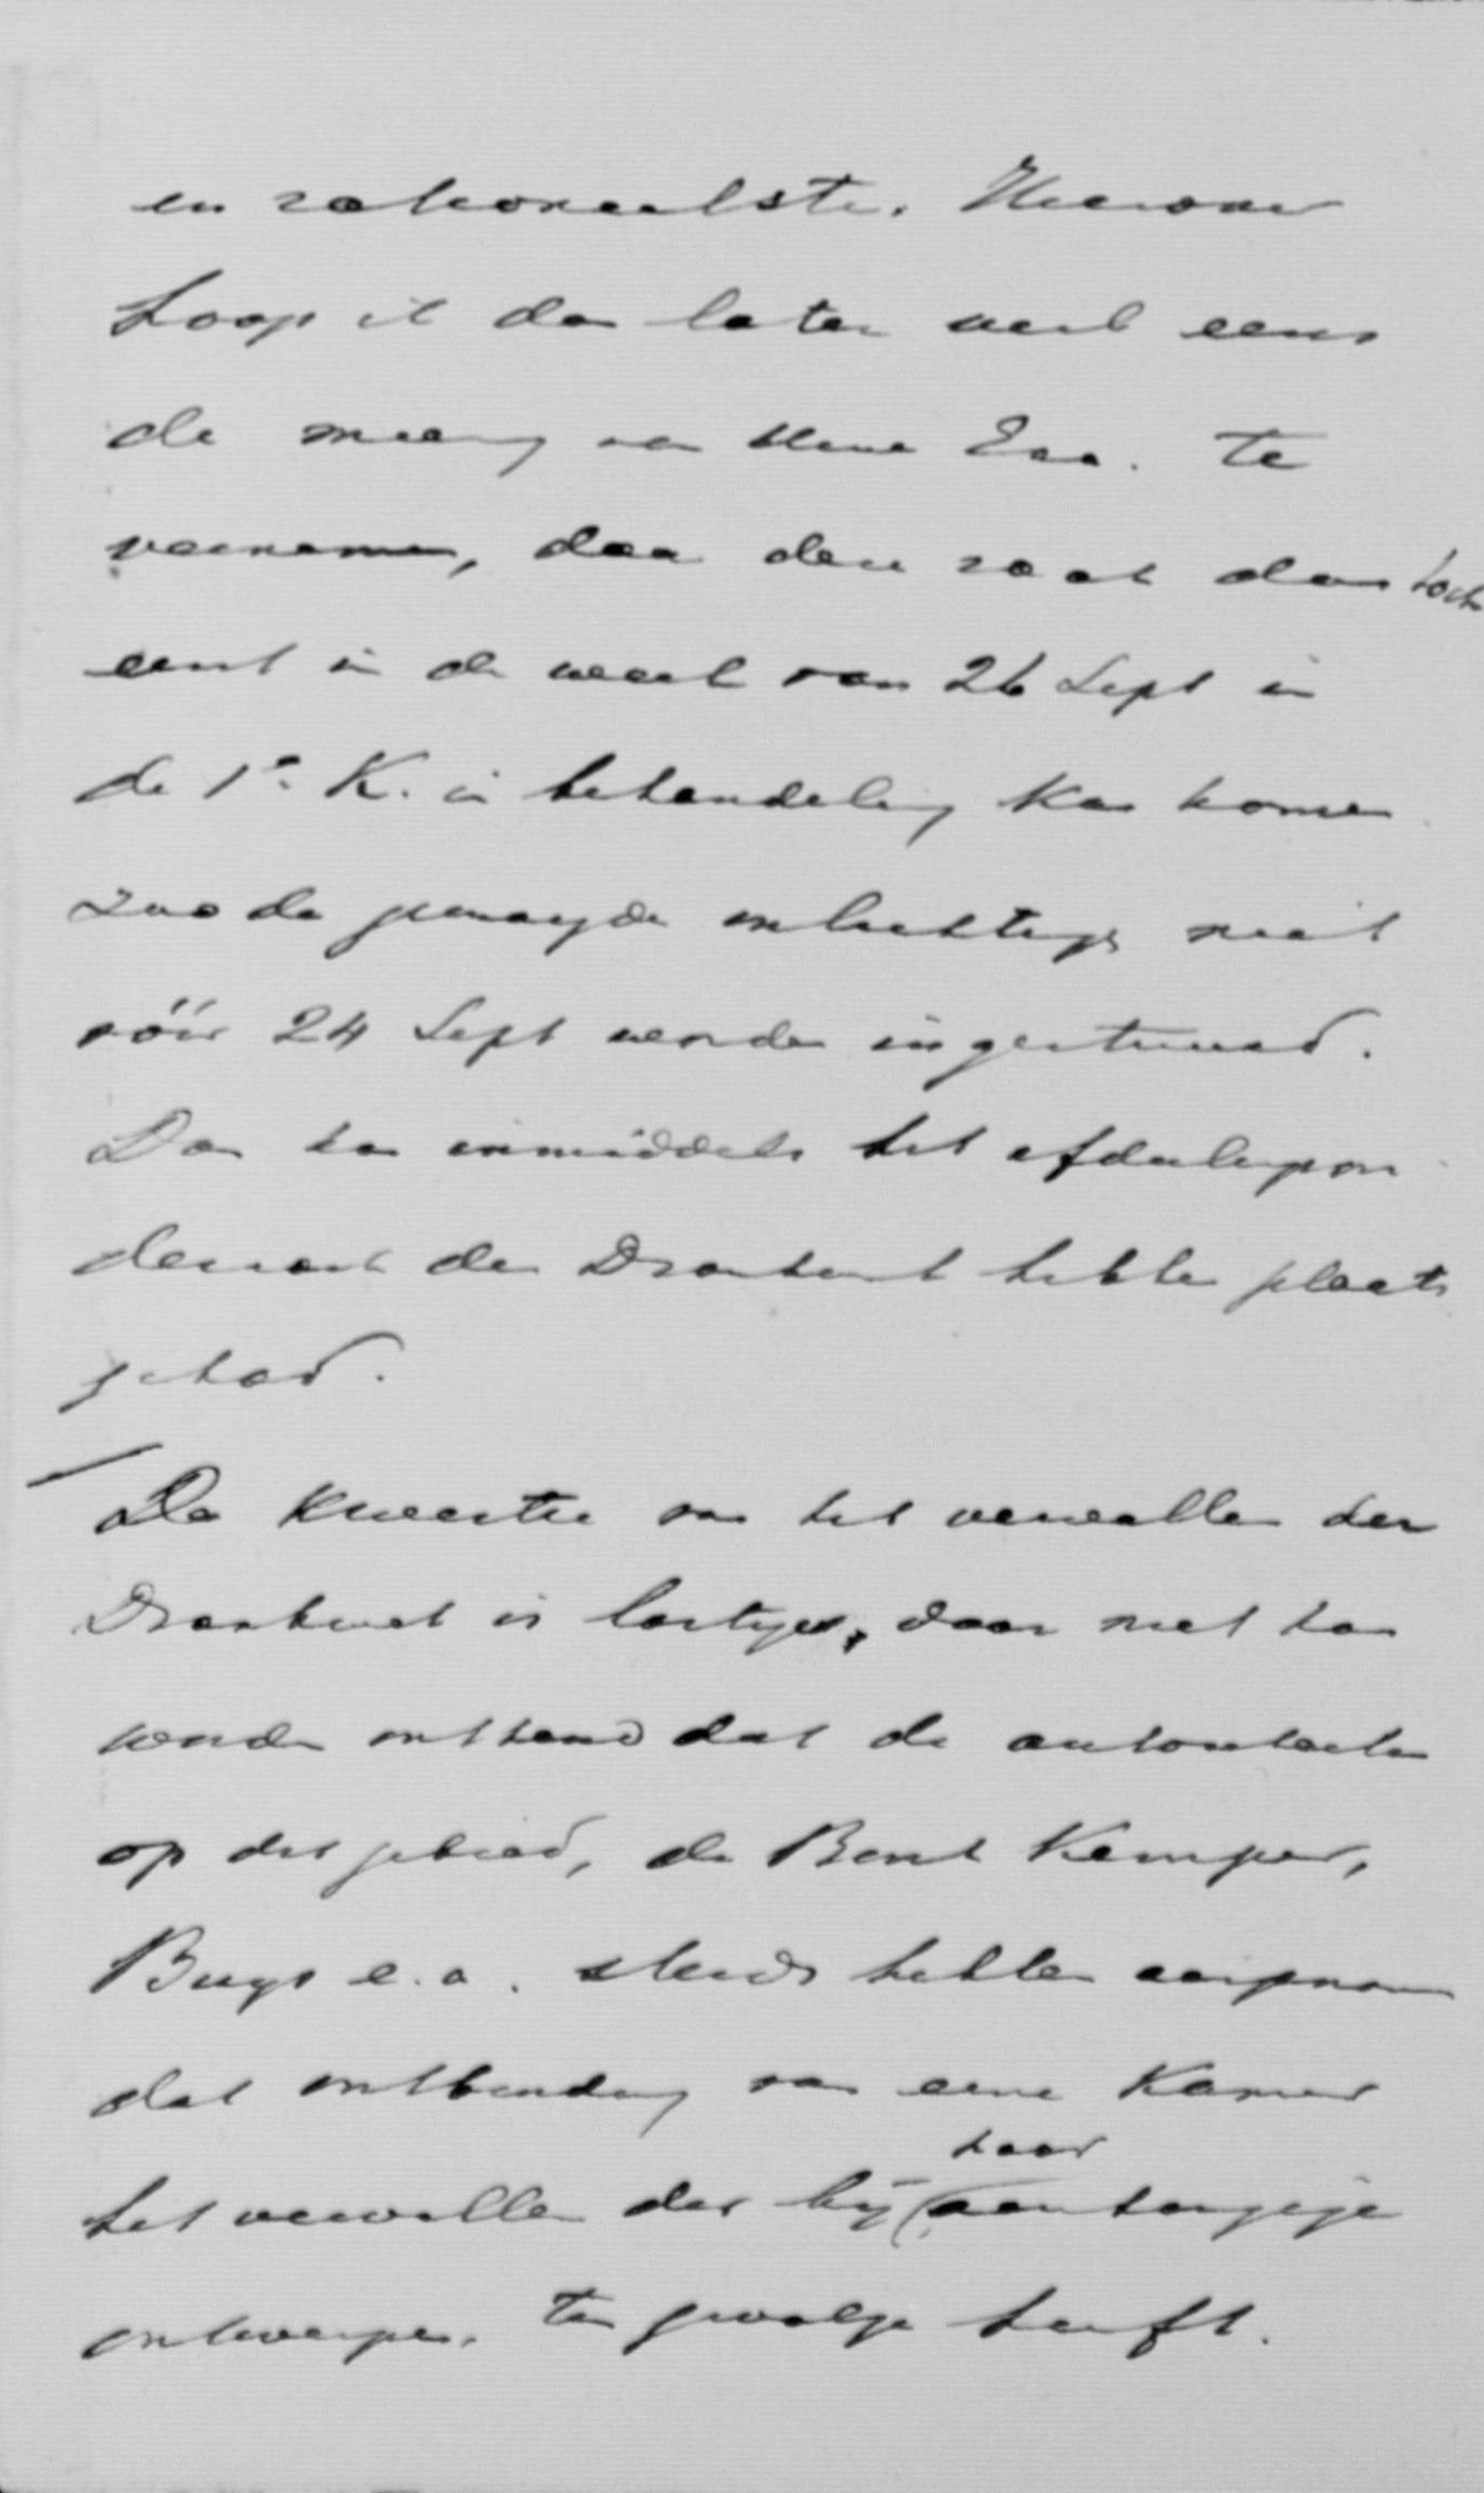 en rationeelste. Hierover
hoop ik dan later wel eens
de meening van Uwe Exc. te
vernemen, daar deze zaak dan toch
eerst in de week van 26 Sept in
de 1e K. in behandeling kan komen
zoo de gevraagde inlichtingen niet
vóór 24 Sept worden ingestuurd.
Dan kan inmiddels het afdeelingson
derzoek der Drankwet hebben plaats
gehad.
De kwestie van het vervallen der
Drankwet is lastiger, daar niet kan
worden ontkend dat de autoriteiten
op dit gebied, de Bosch Kemper,
Buys e.a. steeds hebben aangenomen
dat ontbinding van eene Kamer
het vervallen der bij haar aanhangige
ontwerpen ten gevolge heeft.